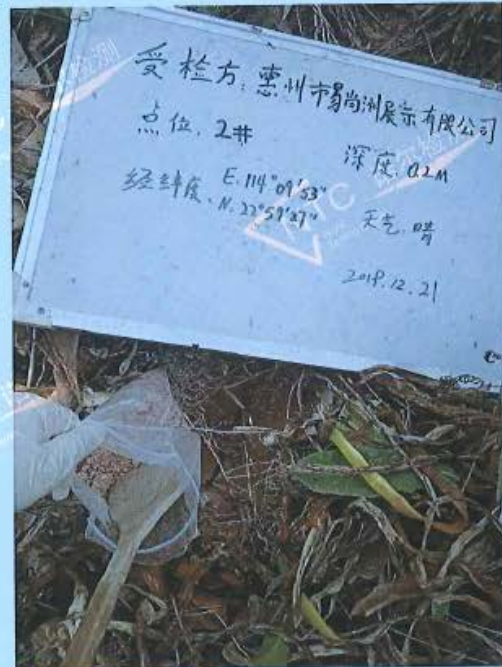 受检方：惠州市易尚洲展示有限公司
点位：2#
深度：0.2M
经纬度：E：114°09'53"
N：22°59'27"
天气：晴
2018.12.21